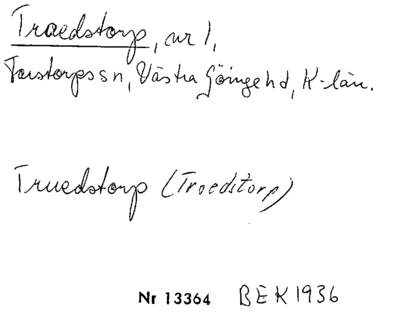 Troedstorp, nr 1,
Farstorps sn, Västra Göinge hd, K-län.
Truedstorp (Troedstorp)
Nr 13364 BEK 1936